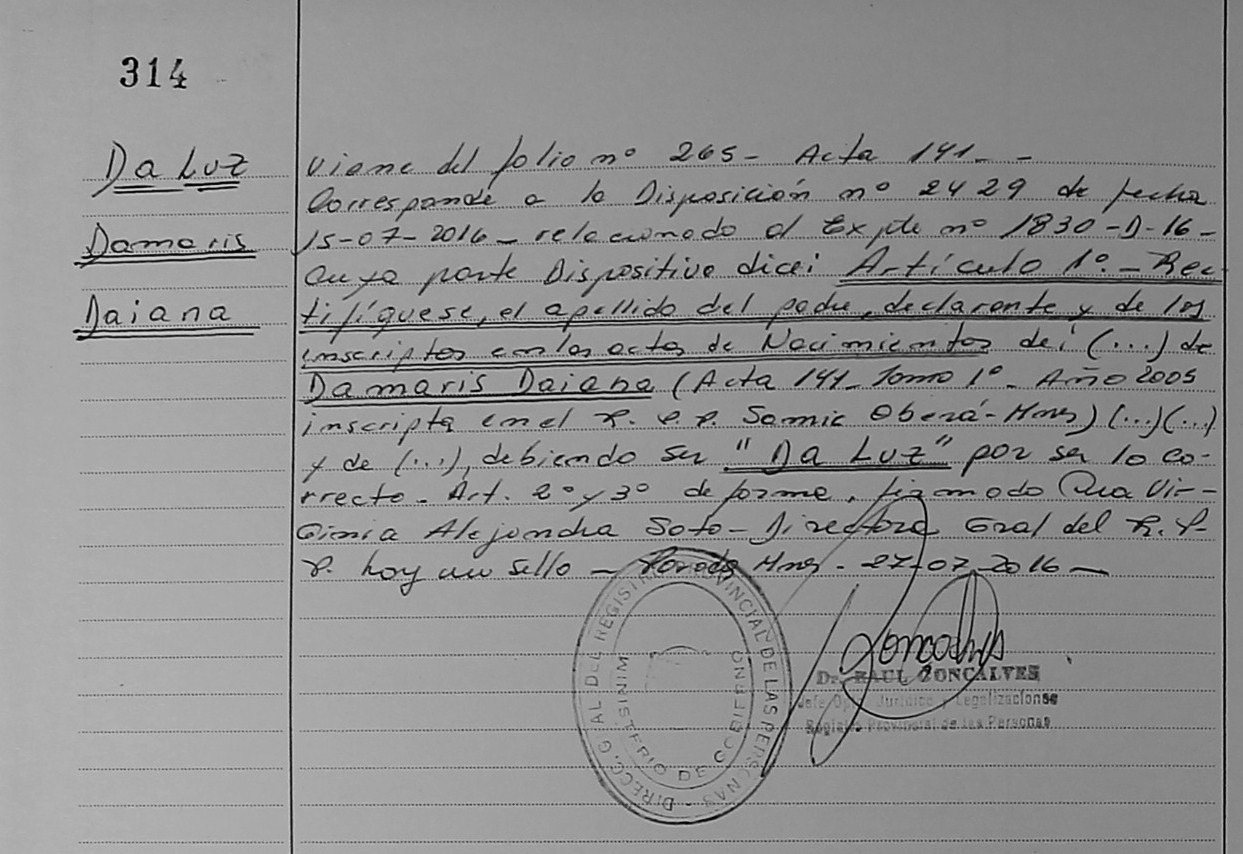 314
Da Luz
Damaris
Daiana
Viene del folio nº 265- Acta 141- -
Corresponde a la Disposición nº 2429 de fecha
15-07-2016- relacionado al Expte nº 1830-D-16-
cuya parte Dispositiva dice: Artículo 1º.- Rec-
tifíquese, el apellido del padre, declarante y de los
inscriptos en las actas de Nacimientos de: (...) de
Damaris Daiana (Acta 141- Tomo 1º- Año 2005
inscripta en el R. P. P. Samic Oberá-Mnes) (...)(...)
y de (...), debiendo ser "Da Luz" por ser lo co-
rrecto- Art. 2º y 3º de forma, firmado Dra Vir-
ginia Alejandra Soto- Directora Gral del R. P.
P. hay un sello - Posadas Mnes- 27-07-2016-
DIRECC. GRAL DEL REGISTRO PROVINCIAL DE LAS PERSONAS
MINISTERIO DE GOBIERNO
Dr. RAUL GONCALVES
Jefe Dpto. Jurídico y Legalizaciones
Registro Provincial de las Personas